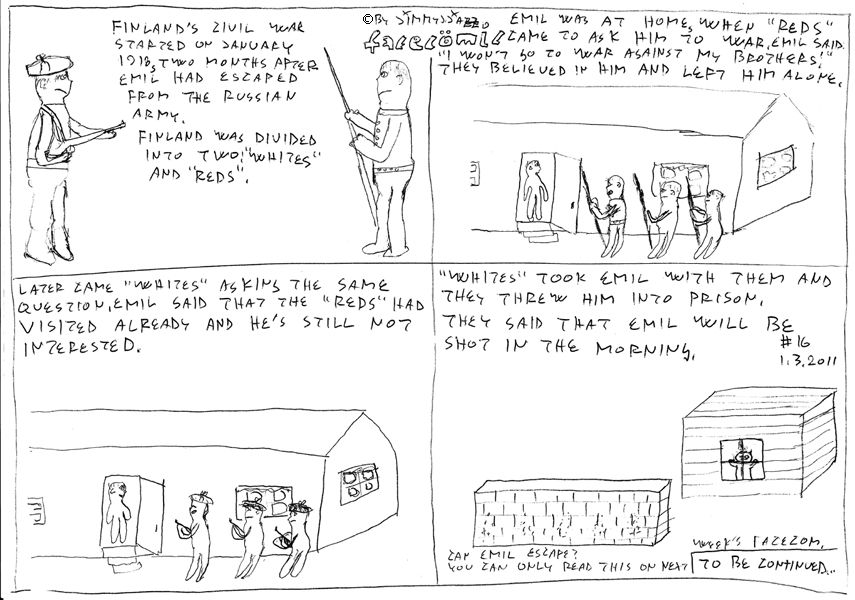 FINLAND'S CIVIL WAR
STARTED ON JANUARY
1918, TWO MONTHS AFTER
EMIL HAD ESCAPED
FROM THE RUSSIAN
ARMY.
FINLAND WAS DIVIDED
INTO TWO: "WHITES"
AND "REDS".
©BY JIMMYJJAZZ
facecömls
EMIL WAS AT HOME, WHEN "REDS"
CAME TO ASK HIM TO WAR. EMIL SAID:
"I WON'T GO TO WAR AGAINST MY BROTHERS!"
THEY BELIEVED IN HIM AND LEFT HIM ALONE.
LATER CAME "WHITES" ASKING THE SAME
QUESTION. EMIL SAID THAT THE "REDS" HAD
VISITED ALREADY AND HE'S STILL NOT
INTERESTED.
"WHITES" TOOK EMIL WITH THEM AND
THEY THREW HIM INTO PRISON.
THEY SAID THAT EMIL WILL BE
SHOT IN THE MORNING.
#16
1.3.2011
CAN EMIL ESCAPE?
YOU CAN ONLY READ THIS ON NEXT
WEEK'S FACECOM.
TO BE CONTINUED...